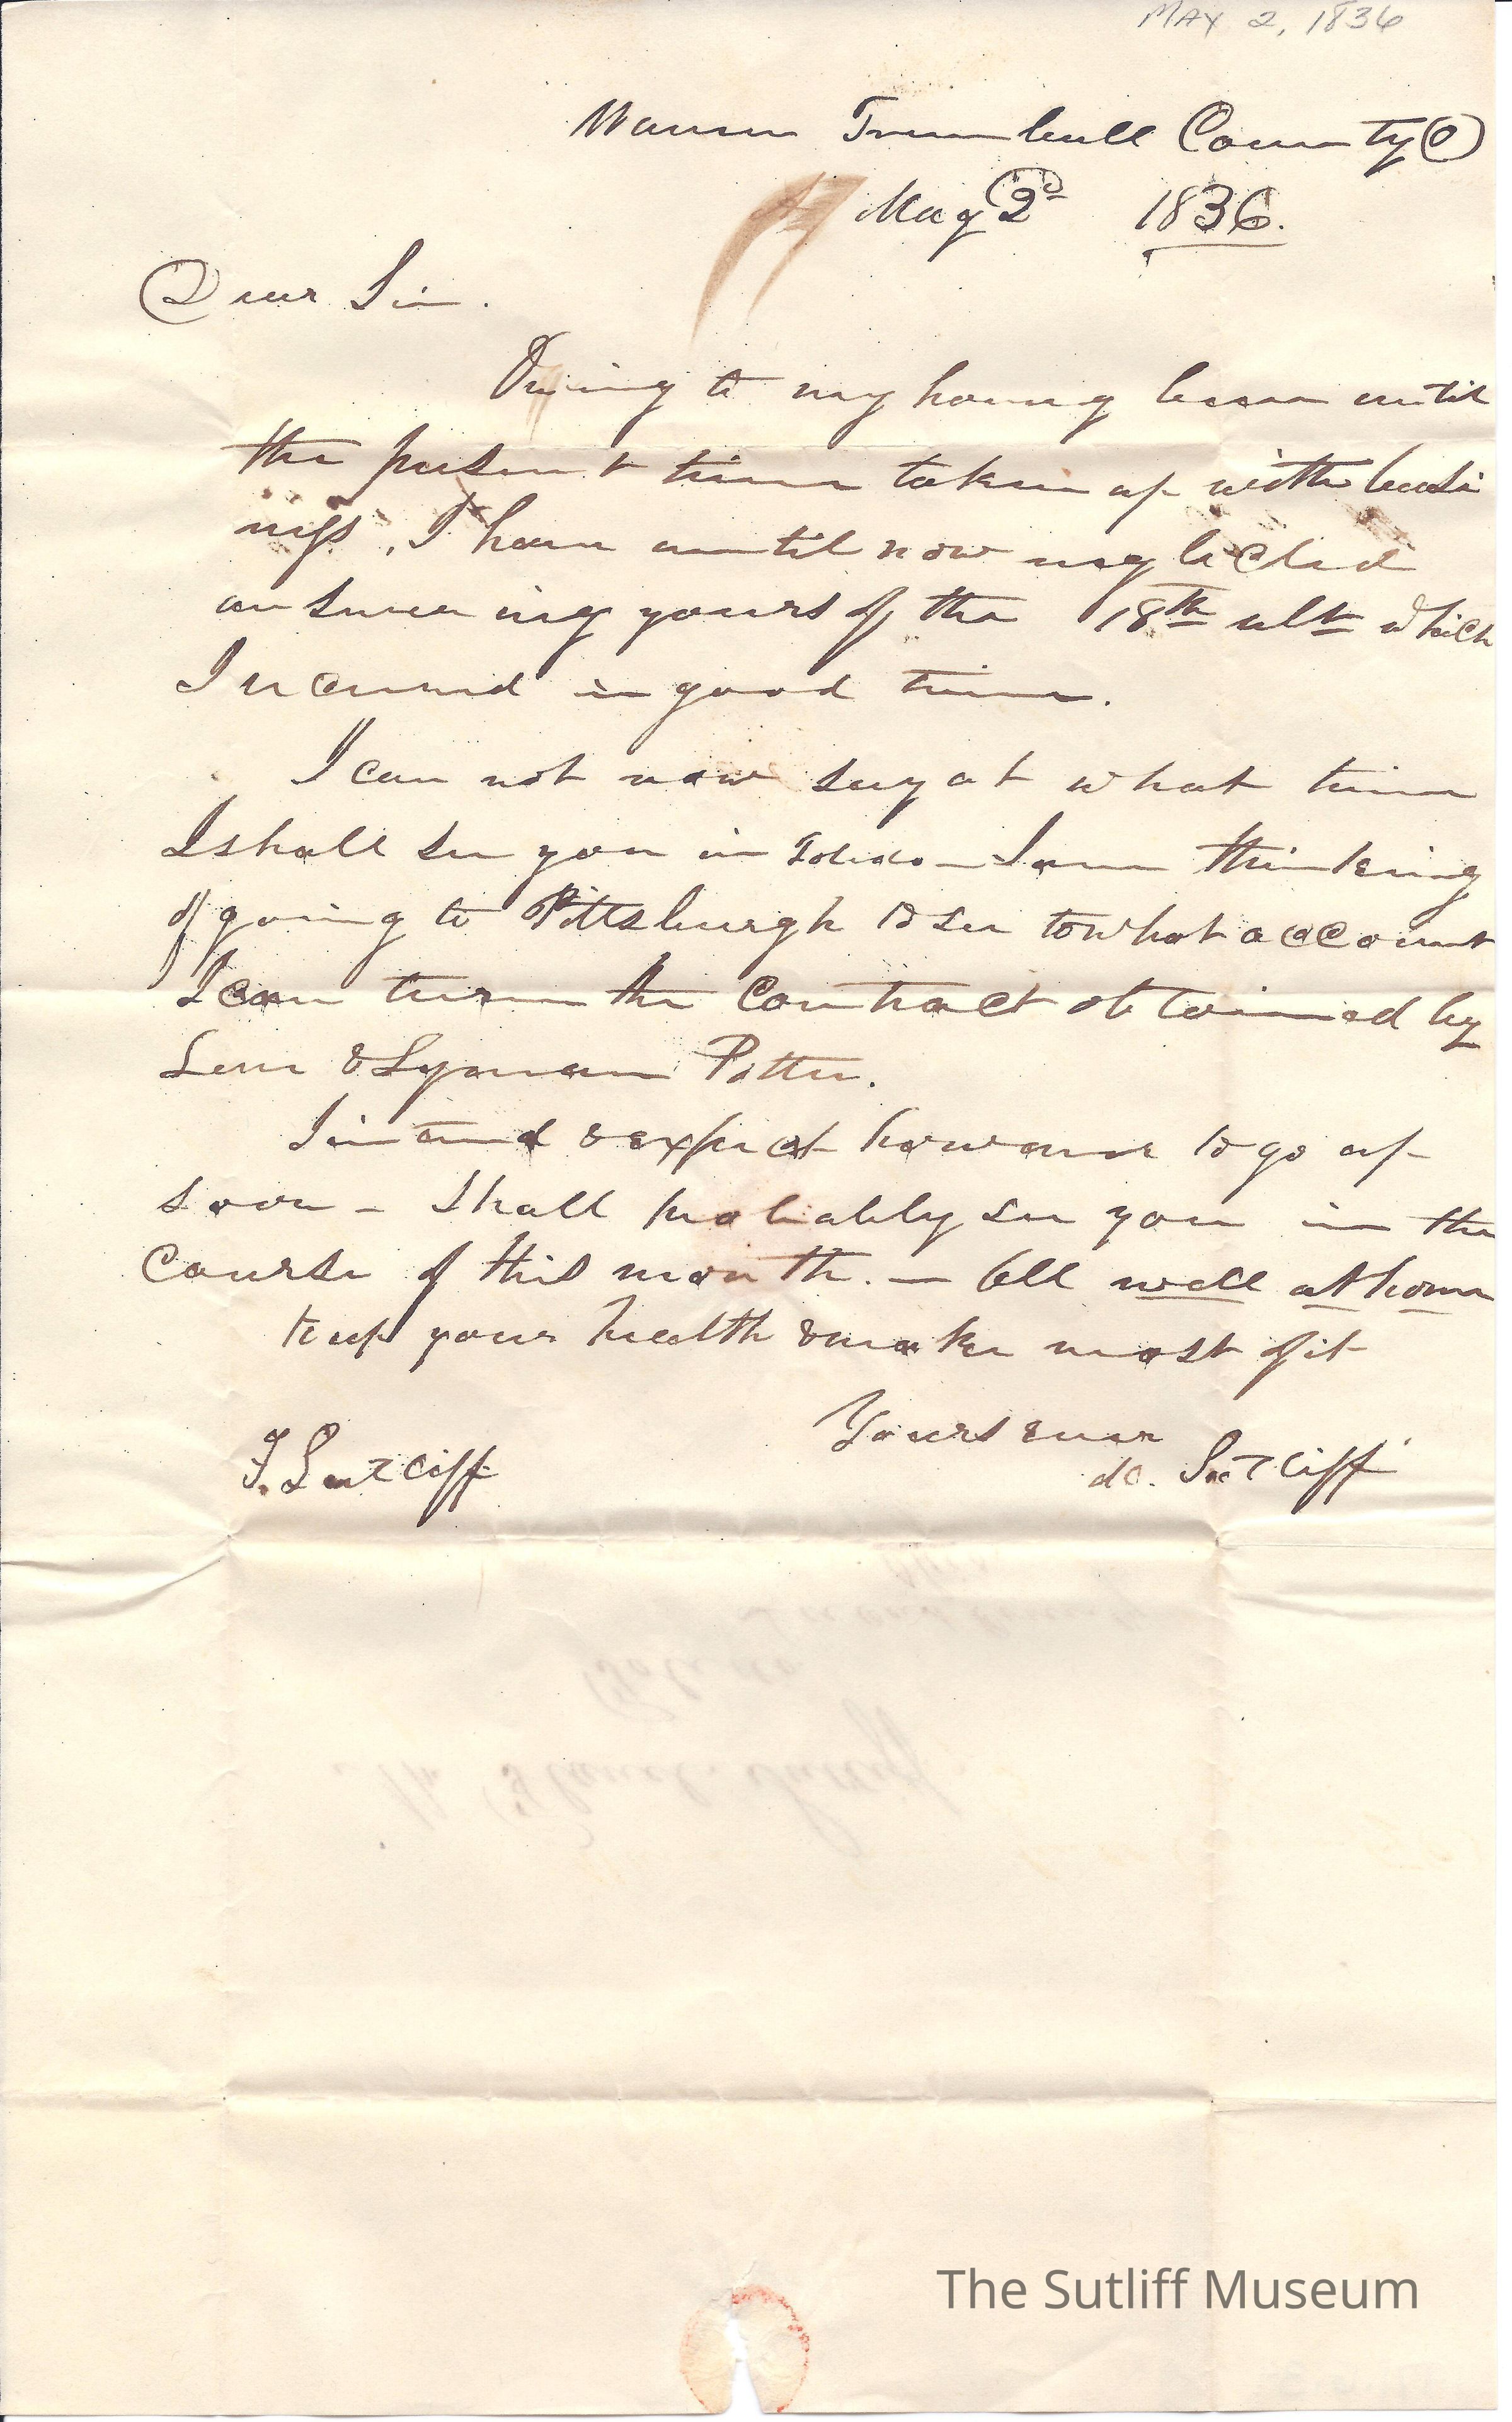 MAY 2, 1836
Warren Trumbull County (O)
May 2d 1836.
Dear Sir.
Owing to my having been until
the present time taken up with busi
ness, I have until now neglected
answering yours of the 18th ult which
I received in good time.
I can not now say at what time
I shall see you in Toledo - I am thinking
of going to Pittsburgh to see to what account
I can turn the Contract obtained by
& Lyman Potter.
I intend & expect however to go up
soon - shall probably see you in the
course of this month. - All well at home
keep your health & make most of it
Yours ever
F. Sutliff Sutliff
The Sutliff Museum